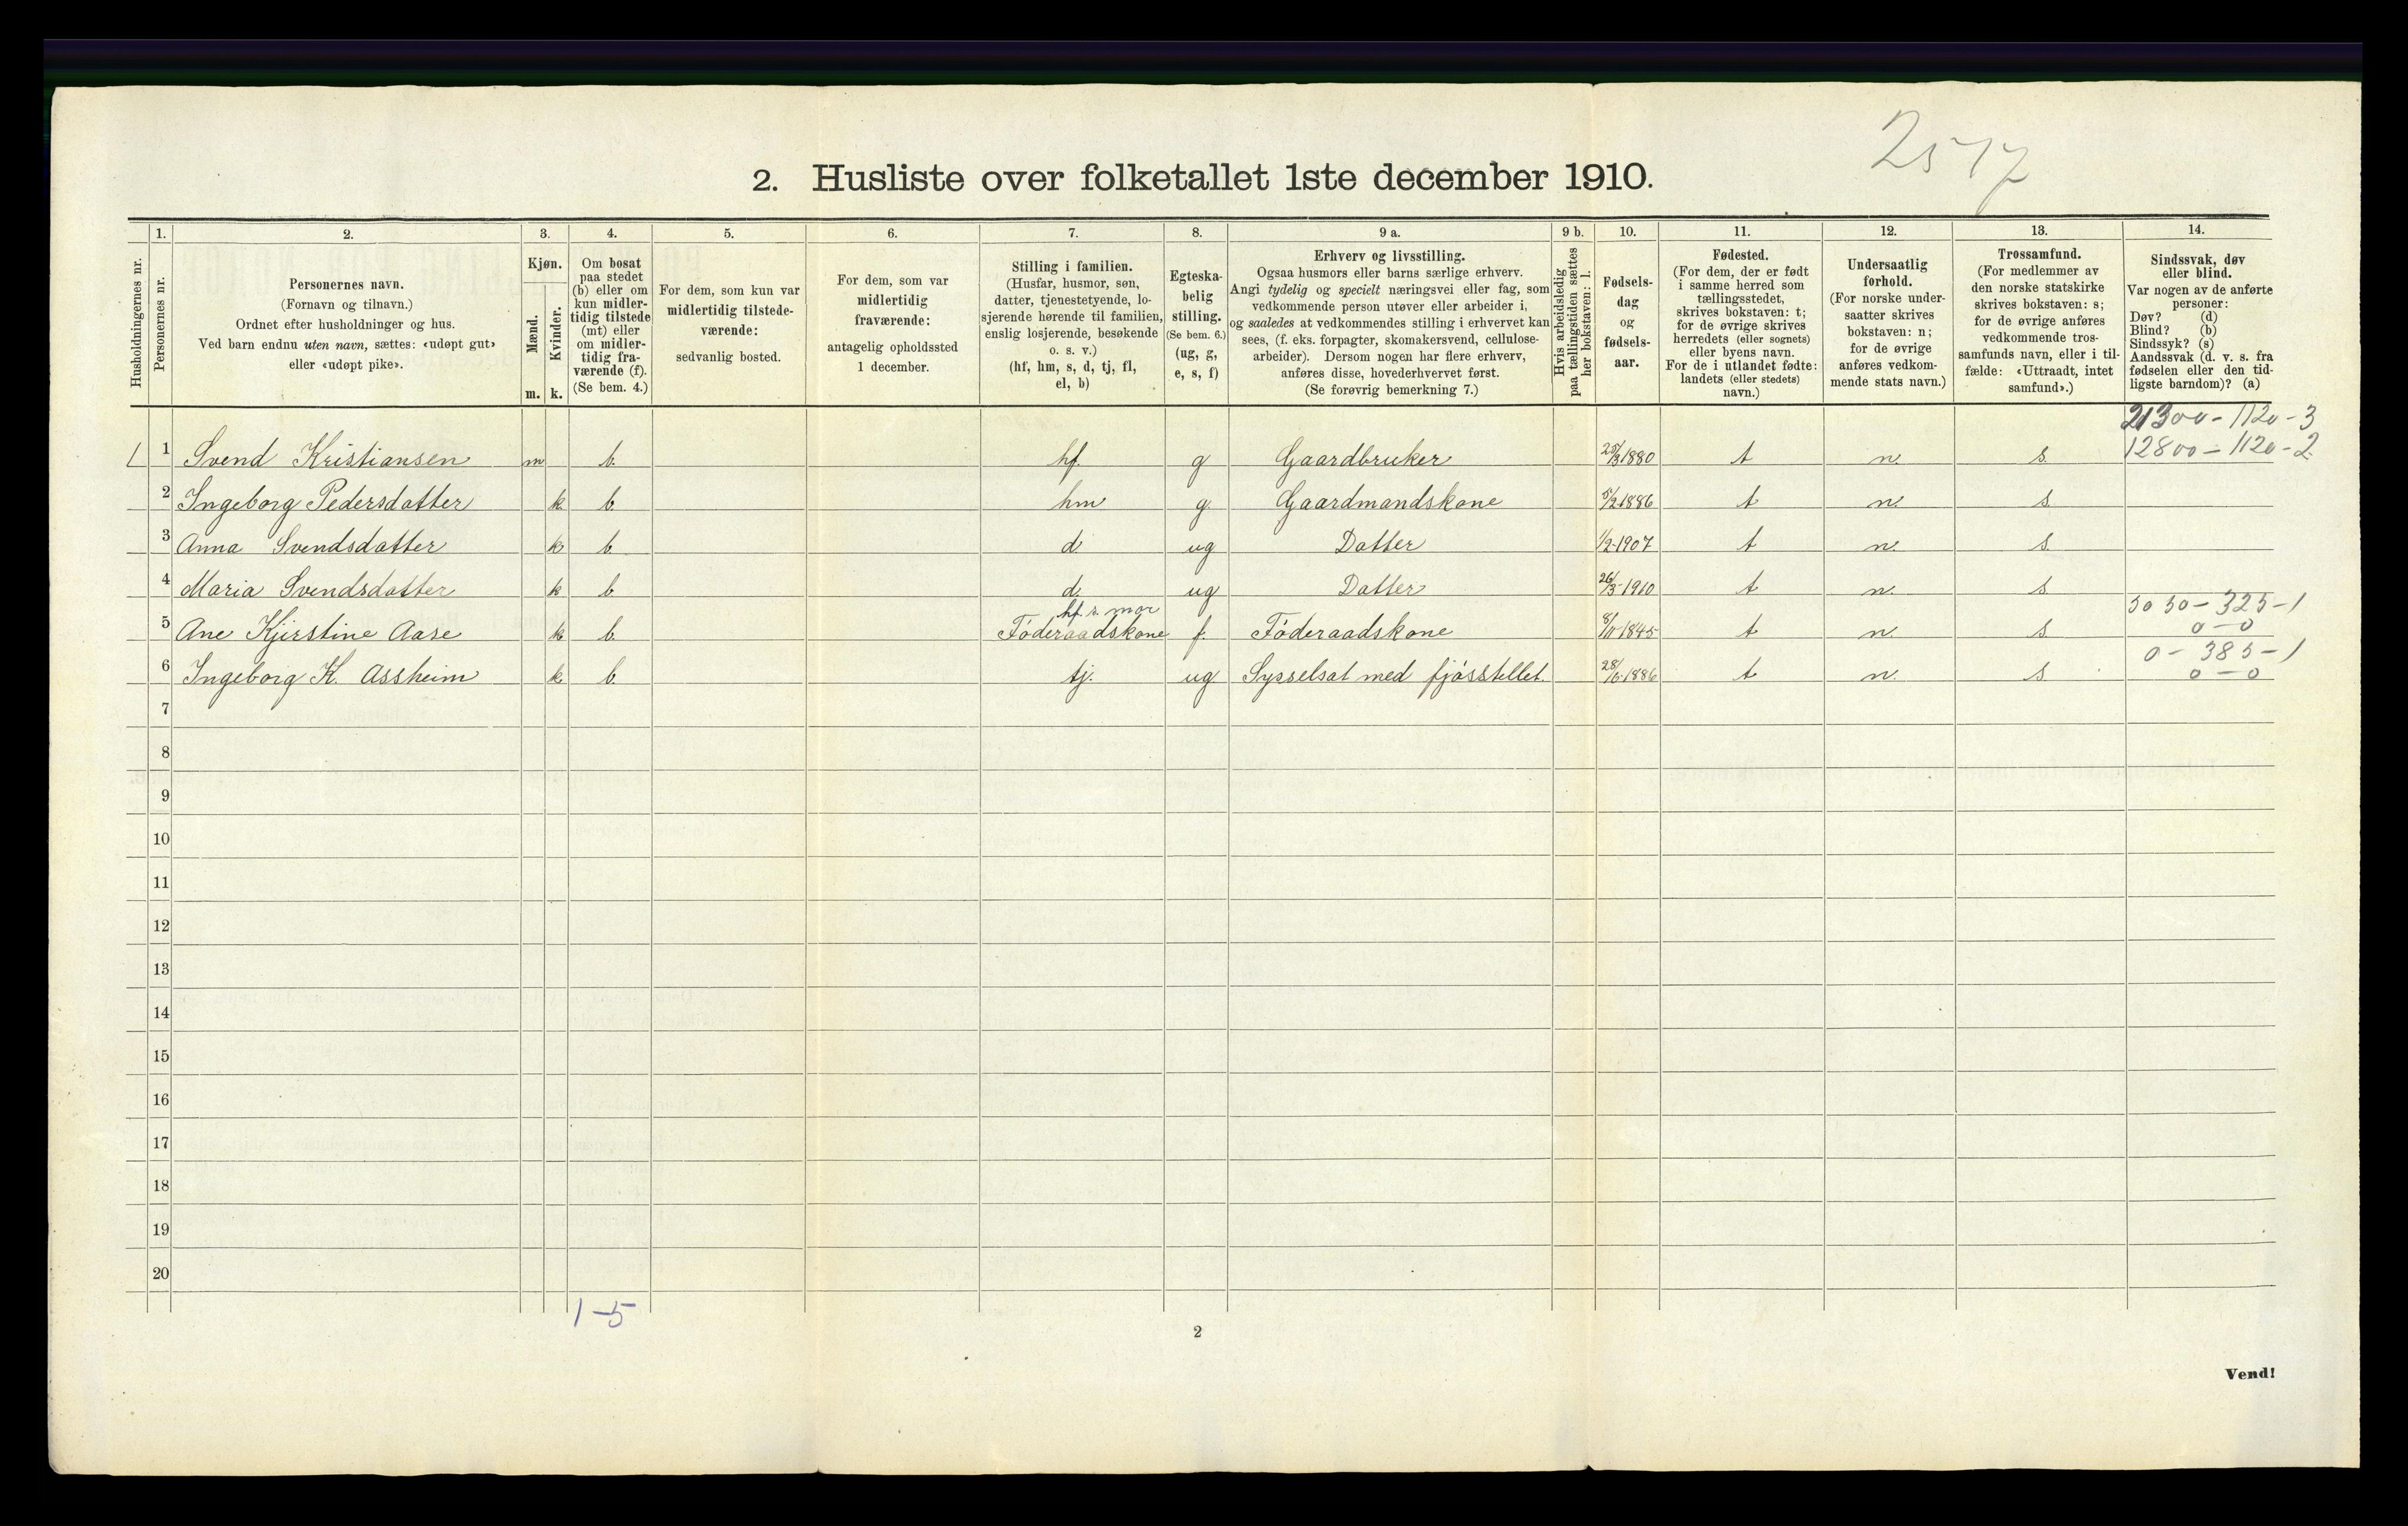 2517
2. Husliste over folketallet 1ste december 1910.
Husholdningernes nr.
1.
Personernes nr.
2.
Personernes navn.
(Fornavn og tilnavn.)
Ordnet efter husholdninger og hus.
Ved barn endnu uten navn, sættes: «udøpt gut»
eller «udøpt pike».
3.
Kjøn.
Mænd.
Kvinder.
m. k.
4.
Om bosat
paa stedet
(b) eller om
kun midler-
tidig tilstede
(mt) eller
om midler-
tidig fra-
værende (f).
(Se bem. 4.)
5.
For dem, som kun var
midlertidig tilstede-
værende:
sedvanlig bosted.
6.
For dem, som var
midlertidig
fraværende:
antagelig opholdssted
1 december.
7.
Stilling i familien.
(Husfar, husmor, søn,
datter, tjenestetyende, lo-
sjerende hørende til familien,
enslig losjerende, besøkende
o. s. v.)
(hf, hm, s, d, tj, fl,
el, b)
8.
Egteska-
belig
stilling.
(Se bem. 6.)
(ug, g,
e, s, f)
9 a.
Erhverv og livsstilling.
Ogsaa husmors eller barns særlige erhverv.
Angi tydelig og specielt næringsvei eller fag, som
vedkommende person utøver eller arbeider i,
og saaledes at vedkommendes stilling i erhvervet kan
sees, (f. eks. forpagter, skomakersvend, cellulose-
arbeider). Dersom nogen har flere erhverv,
anføres disse, hovederhvervet først.
(Se forøvrig bemerkning 7.)
9 b.
Hvis arbeidsledig
paa tællingstiden sættes
her bokstaven: l.
10.
Fødsels-
dag
og
fødsels-
aar.
11.
Fødested.
(For dem, der er født
i samme herred som
tællingsstedet,
skrives bokstaven: t;
for de øvrige skrives
herredets (eller sognets)
eller byens navn.
For de i utlandet fødte:
landets (eller stedets)
navn.)
12.
Undersaatlig
forhold.
(For norske under-
saatter skrives
bokstaven: n;
for de øvrige
anføres vedkom-
mende stats navn.)
13.
Trossamfund.
(For medlemmer av
den norske statskirke
skrives bokstaven: s;
for de øvrige anføres
vedkommende tros-
samfunds navn, eller i til-
fælde: «Uttraadt, intet
samfund».)
14.
Sindssvak, døv
eller blind.
Var nogen av de anførte
personer:
Døv? (d)
Blind? (b)
Sindssyk? (s)
Aandssvak (d. v. s. fra
fødselen eller den tid-
ligste barndom)? (a)
21300 - 1120 - 3
1 1 Svend Kristiansen m b. hf. g Gaardbruker 25/3 1880 t n. s. 12800 - 1120 - 2
2 Ingeborg Pedersdatter k. b. hm g. Gaardmandskone 5/2 1886 t n. s.
3 Anna Svendsdatter k b. d ug Datter 1/2-1907 t n. s.
4 Maria Svendsdatter k b. d. ug Datter 26/3-1910 t n. s
hf. s. mor 5050 - 325 - 1
5 Ane Kjirstine Aase k. b. Föderaadskone f. Föderaadskone 8/11-1845 t n. s. 0 - 0
0 - 385 - 1
6 Ingeborg K. Assheim k. b. tj. ug Sysselsat med fjösstellet. 28/6-1886 t n. s. 0 - 0
7
8
9
10
11
12
13
14
15
16
17
18
19
20
1-5
2
Vend!